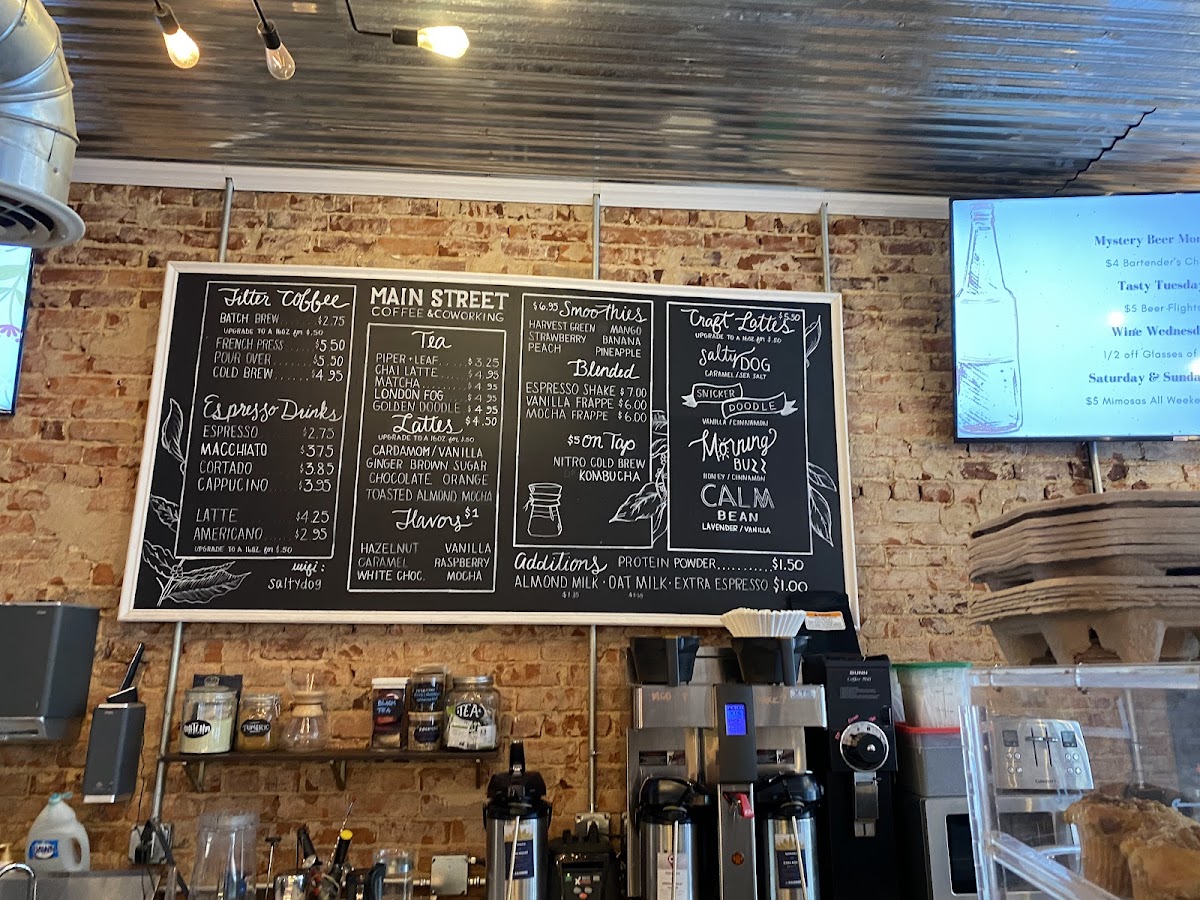 Filter Coffee
BATCH BREW.....$2.75
UPGRADE TO A 16OZ for $.50
FRENCH PRESS....$5.50
POUR OVER......$5.50
COLD BREW......$4.95
Espresso Drinks
ESPRESSO $2.75
MACCHIATO $3.75
CORTADO $3.85
CAPPUCINO $3.95
LATTE $4.25
AMERICANO $2.95
UPGRADE TO A 16OZ for $.50
wifi:
saltydog
MAIN STREET
COFFEE & COWORKING
Tea
PIPER • LEAF....$3.25
CHAI LATTE....$4.95
MATCHA....$4.95
LONDON FOG....$4.95
GOLDEN DOODLE $4.95
Lattes $4.50
UPGRADE TO A 16OZ for $.50
CARDAMOM/VANILLA
GINGER BROWN SUGAR
CHOCOLATE ORANGE
TOASTED ALMOND MOCHA
Flavors $1
HAZELNUT VANILLA
CARAMEL RASPBERRY
WHITE CHOC. MOCHA
$6.95 Smoothies
HARVEST GREEN MANGO
STRAWBERRY BANANA
PEACH PINEAPPLE
Blended
ESPRESSO SHAKE $7.00
VANILLA FRAPPE $6.00
MOCHA FRAPPE $6.00
$5 on Tap
NITRO COLD BREW
KOMBUCHA
Craft Lattes $5.50
UPGRADE TO A 16OZ for $.50
Salty DOG
CARAMEL/SEA SALT
SNICKER
DOODLE
VANILLA/CINNAMON
Morning
BUZZ
HONEY/CINNAMON
CALM
BEAN
LAVENDER/VANILLA
Additions PROTEIN POWDER..........$1.50
ALMOND MILK • OAT MILK • EXTRA ESPRESSO $1.00
Mystery Beer
$4 Bartender's
Tasty Tuesday
$5 Beer Flights
Wine
1/2 off Glasses of
Saturday &
$5 Mimosas All
BLACK
TEA
TURMERIC
TEA
BUNN
Coffee Mill
DAWN